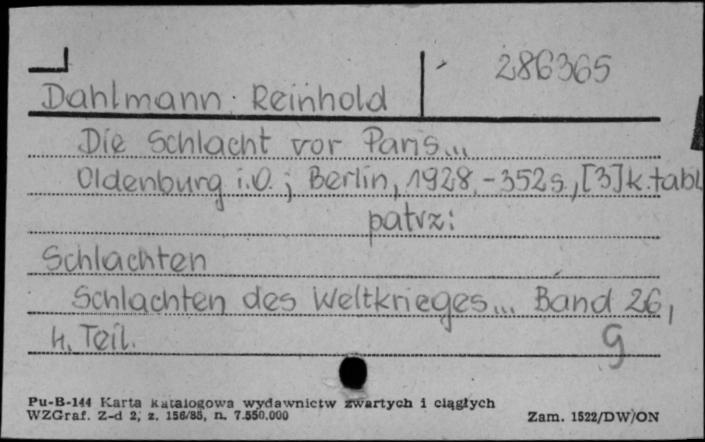 286365
Dahlmann Reinhold
Die Schlacht vor Paris...
Oldenburg i.O.; Berlin, 1928.-352s., [3]k.tabl
patrz:
Schlachten
Schlachten des Weltkrieges... Band 26,
4. Teil. g
Pu-B-144 Karta katalogowa wydawnictw zwartych i ciągłych
WZGraf. Z-d 2, z. 156/85, n. 7.550.000 Zam. 1522/DW/ON